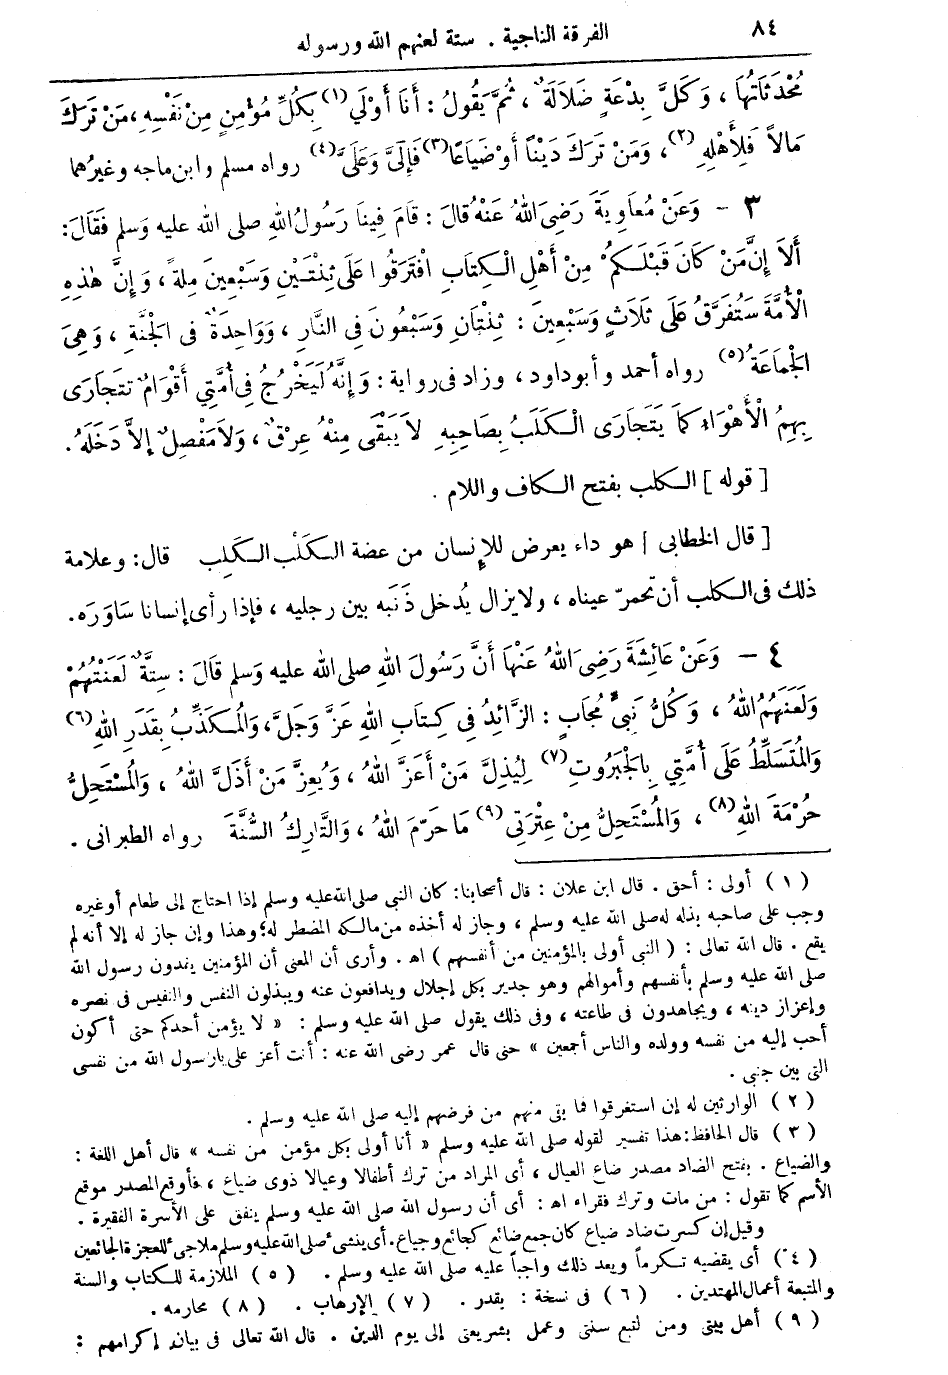 ٨٤ الفرقة الناجية . ستة لعنهم الله ورسوله
مُحْدَثَاتُهَا ، وَكُلَّ بِدْعَةٍ ضَلَالَةٌ ، ثُمَّ يَقُولُ : أَنَا أَوْلَى (١) بِكُلِّ مُؤْمِنٍ مِنْ نَفْسِهِ ، مَنْ تَرَكَ
مَالاً فَلِأَهْلِهِ (٢) ، وَمَنْ تَرَكَ دَيْنًا أَوْ ضَيَاعًا (٣) فَإِلَيَّ وَعَلَيَّ (٤) رواه مسلم وابن ماجه وغيرهما
٣ – وَعَنْ مُعَاوِيَةَ رَضِيَ اللهُ عَنْهُ قَالَ : قَامَ فِينَا رَسُولُ اللهِ صلى الله عليه وَسلم فَقَالَ :
أَلَا إِنَّ مَنْ كَانَ قَبْلَكُمْ مِنْ أَهْلِ الْكِتَابِ افْتَرَقُوا عَلَى ثِنْتَيْنِ وَسَبْعِينَ مِلَّةً ، وَإِنَّ هٰذِهِ
الْأُمَّةَ سَتُفَرَّقُ عَلَى ثَلَاثٍ وَسَبْعِينَ : ثِنْتَانِ وَسَبْعُونَ فِي النَّارِ ، وَوَاحِدَةٌ فِي الْجَنَّةِ ، وَهِيَ
الْجَمَاعَةُ (٥) رواه أحمد وأبو داود ، وزاد فى رواية : وَإِنَّهُ لَيَخْرُجُ فِي أُمَّتِي أَقْوَامٌ تَتَجَارَى
بِهِمُ الْأَهْوَاءُ كَمَا يَتَجَارَى الْكَلَبُ بِصَاحِبِهِ لَا يَبْقَى مِنْهُ عِرْقٌ ، وَلَا مَفْصِلٌ إِلاَّ دَخَلَهُ .
[ قوله ] الكلب بفتح الكاف واللام .
[ قال الخطابى ] هو داء يعرض للإنسان من عضة الكَلْب الكَلِب قال : وعلامة
ذلك فى الكلب أن تحمرّ عيناه ، ولا يزال يُدخل ذَنَبه بين رجليه ، فإذا رأى إنسانا سَاوَرَه .
٤ – وَعَنْ عَائِشَةَ رَضِيَ اللهُ عَنْهَا أَنَّ رَسُولَ اللهِ صلى الله عليه وَسلم قَالَ : سِتَّةٌ لَعَنْتُهُمْ
وَلَعَنَهُمُ اللهُ ، وَكُلُّ نَبِيٍّ مُجَابٍ : الزَّائِدُ فِي كِتَابِ اللهِ عَزَّ وَجَلَّ ، وَالْمُكَذِّبُ بِقَدَرِ اللهِ (٦)
وَالْمُتَسَلِّطُ عَلَى أُمَّتِي بِالْجَبَرُوتِ (٧) لِيُذِلَّ مَنْ أَعَزَّ اللهُ ، وَيُعِزَّ مَنْ أَذَلَّ اللهُ ، وَالْمُسْتَحِلُّ
حُرْمَةَ اللهِ (٨) ، وَالْمُسْتَحِلُّ مِنْ عِتْرَتِي (٩) مَا حَرَّمَ اللهُ ، وَالتَّارِكُ السُّنَّةَ رواه الطبرانى .
( ١ ) أولى : أحق . قال ابن علان : قال أصحابنا : كان النبى صلى الله عليه وسلم إذا احتاج إلى طعام أو غيره
وجب على صاحبه بذله له صلى الله عليه وسلم ، وجاز له أخذه من مالكه المضطر له ؛ وهذا وإن جاز له إلا أنه لم
يقع . قال الله تعالى : ( النبى أولى بالمؤمنين من أنفسهم ) اهـ . وأرى أن المعنى أن المؤمنين يفدون رسول الله
صلى الله عليه وسلم بأنفسهم وأموالهم وهو جدير بكل إجلال ويدافعون عنه ويبذلون النفس والنفيس فى نصره
وإعزاز دينه ، ويجاهدون فى طاعته ، وفى ذلك يقول صلى الله عليه وسلم : « لا يؤمن أحدكم حتى أكون
أحب إليه من نفسه وولده والناس أجمعين » حتى قال عمر رضى الله عنه : أنت أعز علىّ يا رسول الله من نفسى
التى بين جنبى .
( ٢ ) الوارثين له إن استغرقوا فما بقى منهم من فرضهم إليه صلى الله عليه وسلم .
( ٣ ) قال الحافظ : هذا تفسير لقوله صلى الله عليه وسلم « أنا أولى بكل مؤمن من نفسه » قال أهل اللغة :
والضياع . بفتح الضاد مصدر ضاع العيال ، أى المراد من ترك أطفالا وعيالا ذوى ضياع ، فأوقع المصدر موقع
الأسم كما تقول : من مات وترك فقراء اهـ : أى أن رسول الله صلى الله عليه وسلم ينفق على الأسرة الفقيرة .
وقيل إن كسرت ضاد ضياع كان جمع ضائع كجائع وجياع . أى ينشىء صلى الله عليه وسلم ملاجىء للعجزة الجائعين
( ٤ ) أى يقضيه تكرماً ويعد ذلك واجباً عليه صلى الله عليه وسلم . ( ٥ ) الملازمة للكتاب والسنة
والمتبعة أعمال المهتدين . ( ٦ ) فى نسخة : بقدر . ( ٧ ) الإرهاب . ( ٨ ) محارمه .
( ٩ ) أهل بيتى ومن لتبع سنتى وعمل بشريعتى إلى يوم الدين . قال الله تعالى فى بيان إكرامهم :